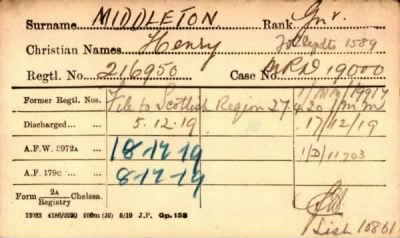 Surname MIDDLETON Rank Gnr.
Christian Names Henry
Regtl. No. 216950 Case No. 19000
Former Regtl. Nos. File to Scottish Region 27.4.20
Discharged 5.12.19 17/12/19
A.F.W. 3972a 18-12-19 1/D/11703
A.F. 179c 8-12-19
Form 2A Registry Chelsea.
5/19 J.P. Gp. 153
List 10861